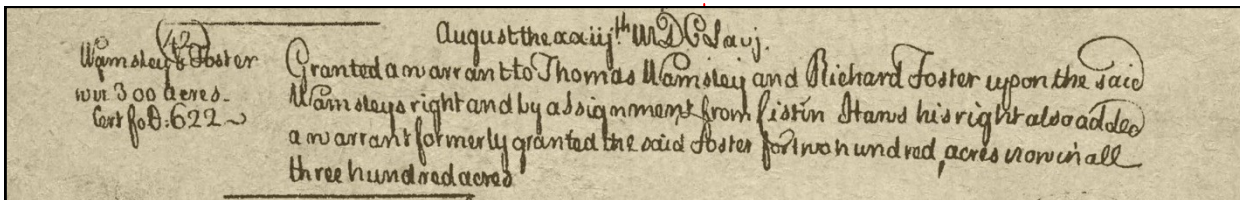 (42)
Wamsley & Foster
wrr 300 acres.
Cert fo D: 622
August the xxiijth MDCLxvj.
Granted a warrant to Thomas Wamsley and Richard Foster upon the said
Wamsleys right and by assignment from Cistin Stans his right also added
a warrant formerly granted the said Foster for two hundred, acres now in all
three hundred acres